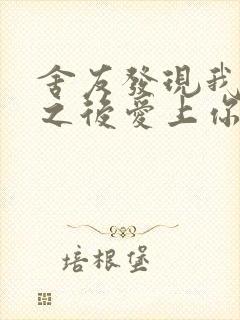 舍友發現我
之後愛上你
培根堡